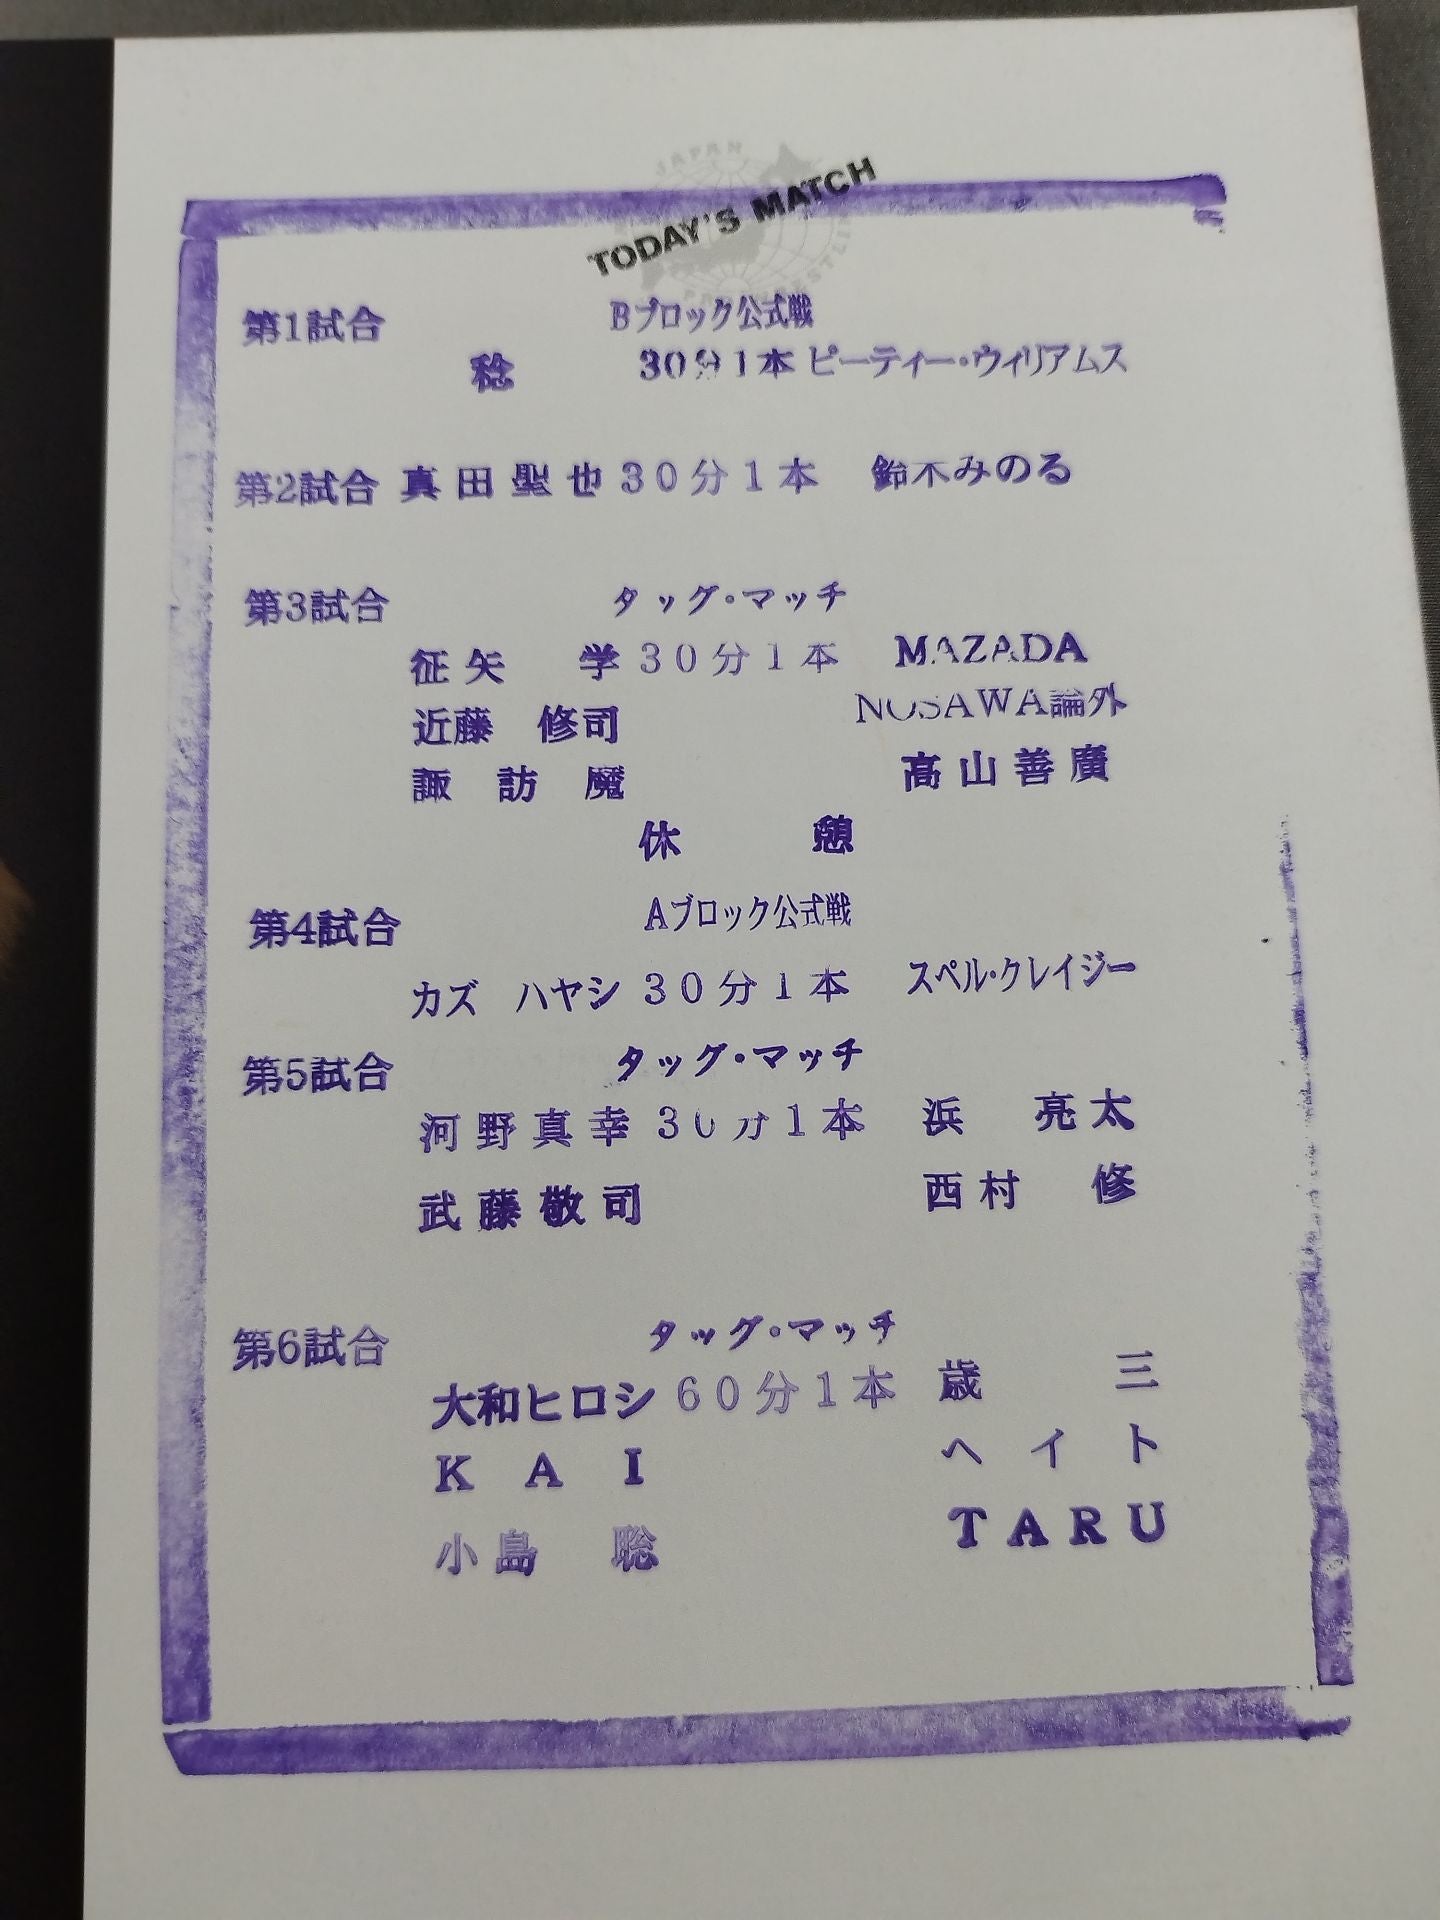 JAPAN
TODAY'S MATCH
第1試合 Bブロック公式戦
稔 30分1本 ピーティー・ウィリアムス
第2試合 真田聖也 30分1本 鈴木みのる
第3試合 タッグ・マッチ
征矢 学 30分1本 MAZADA
近藤 修司 NOSAWA論外
諏訪魔 高山善廣
休憩
第4試合 Aブロック公式戦
カズ ハヤシ 30分1本 スペル・クレイジー
第5試合 タッグ・マッチ
河野真幸 30分1本 浜 亮太
武藤敬司 西村 修
第6試合 タッグ・マッチ
大和ヒロシ 60分1本 歳三
KAI ヘイト
小島 聡 TARU